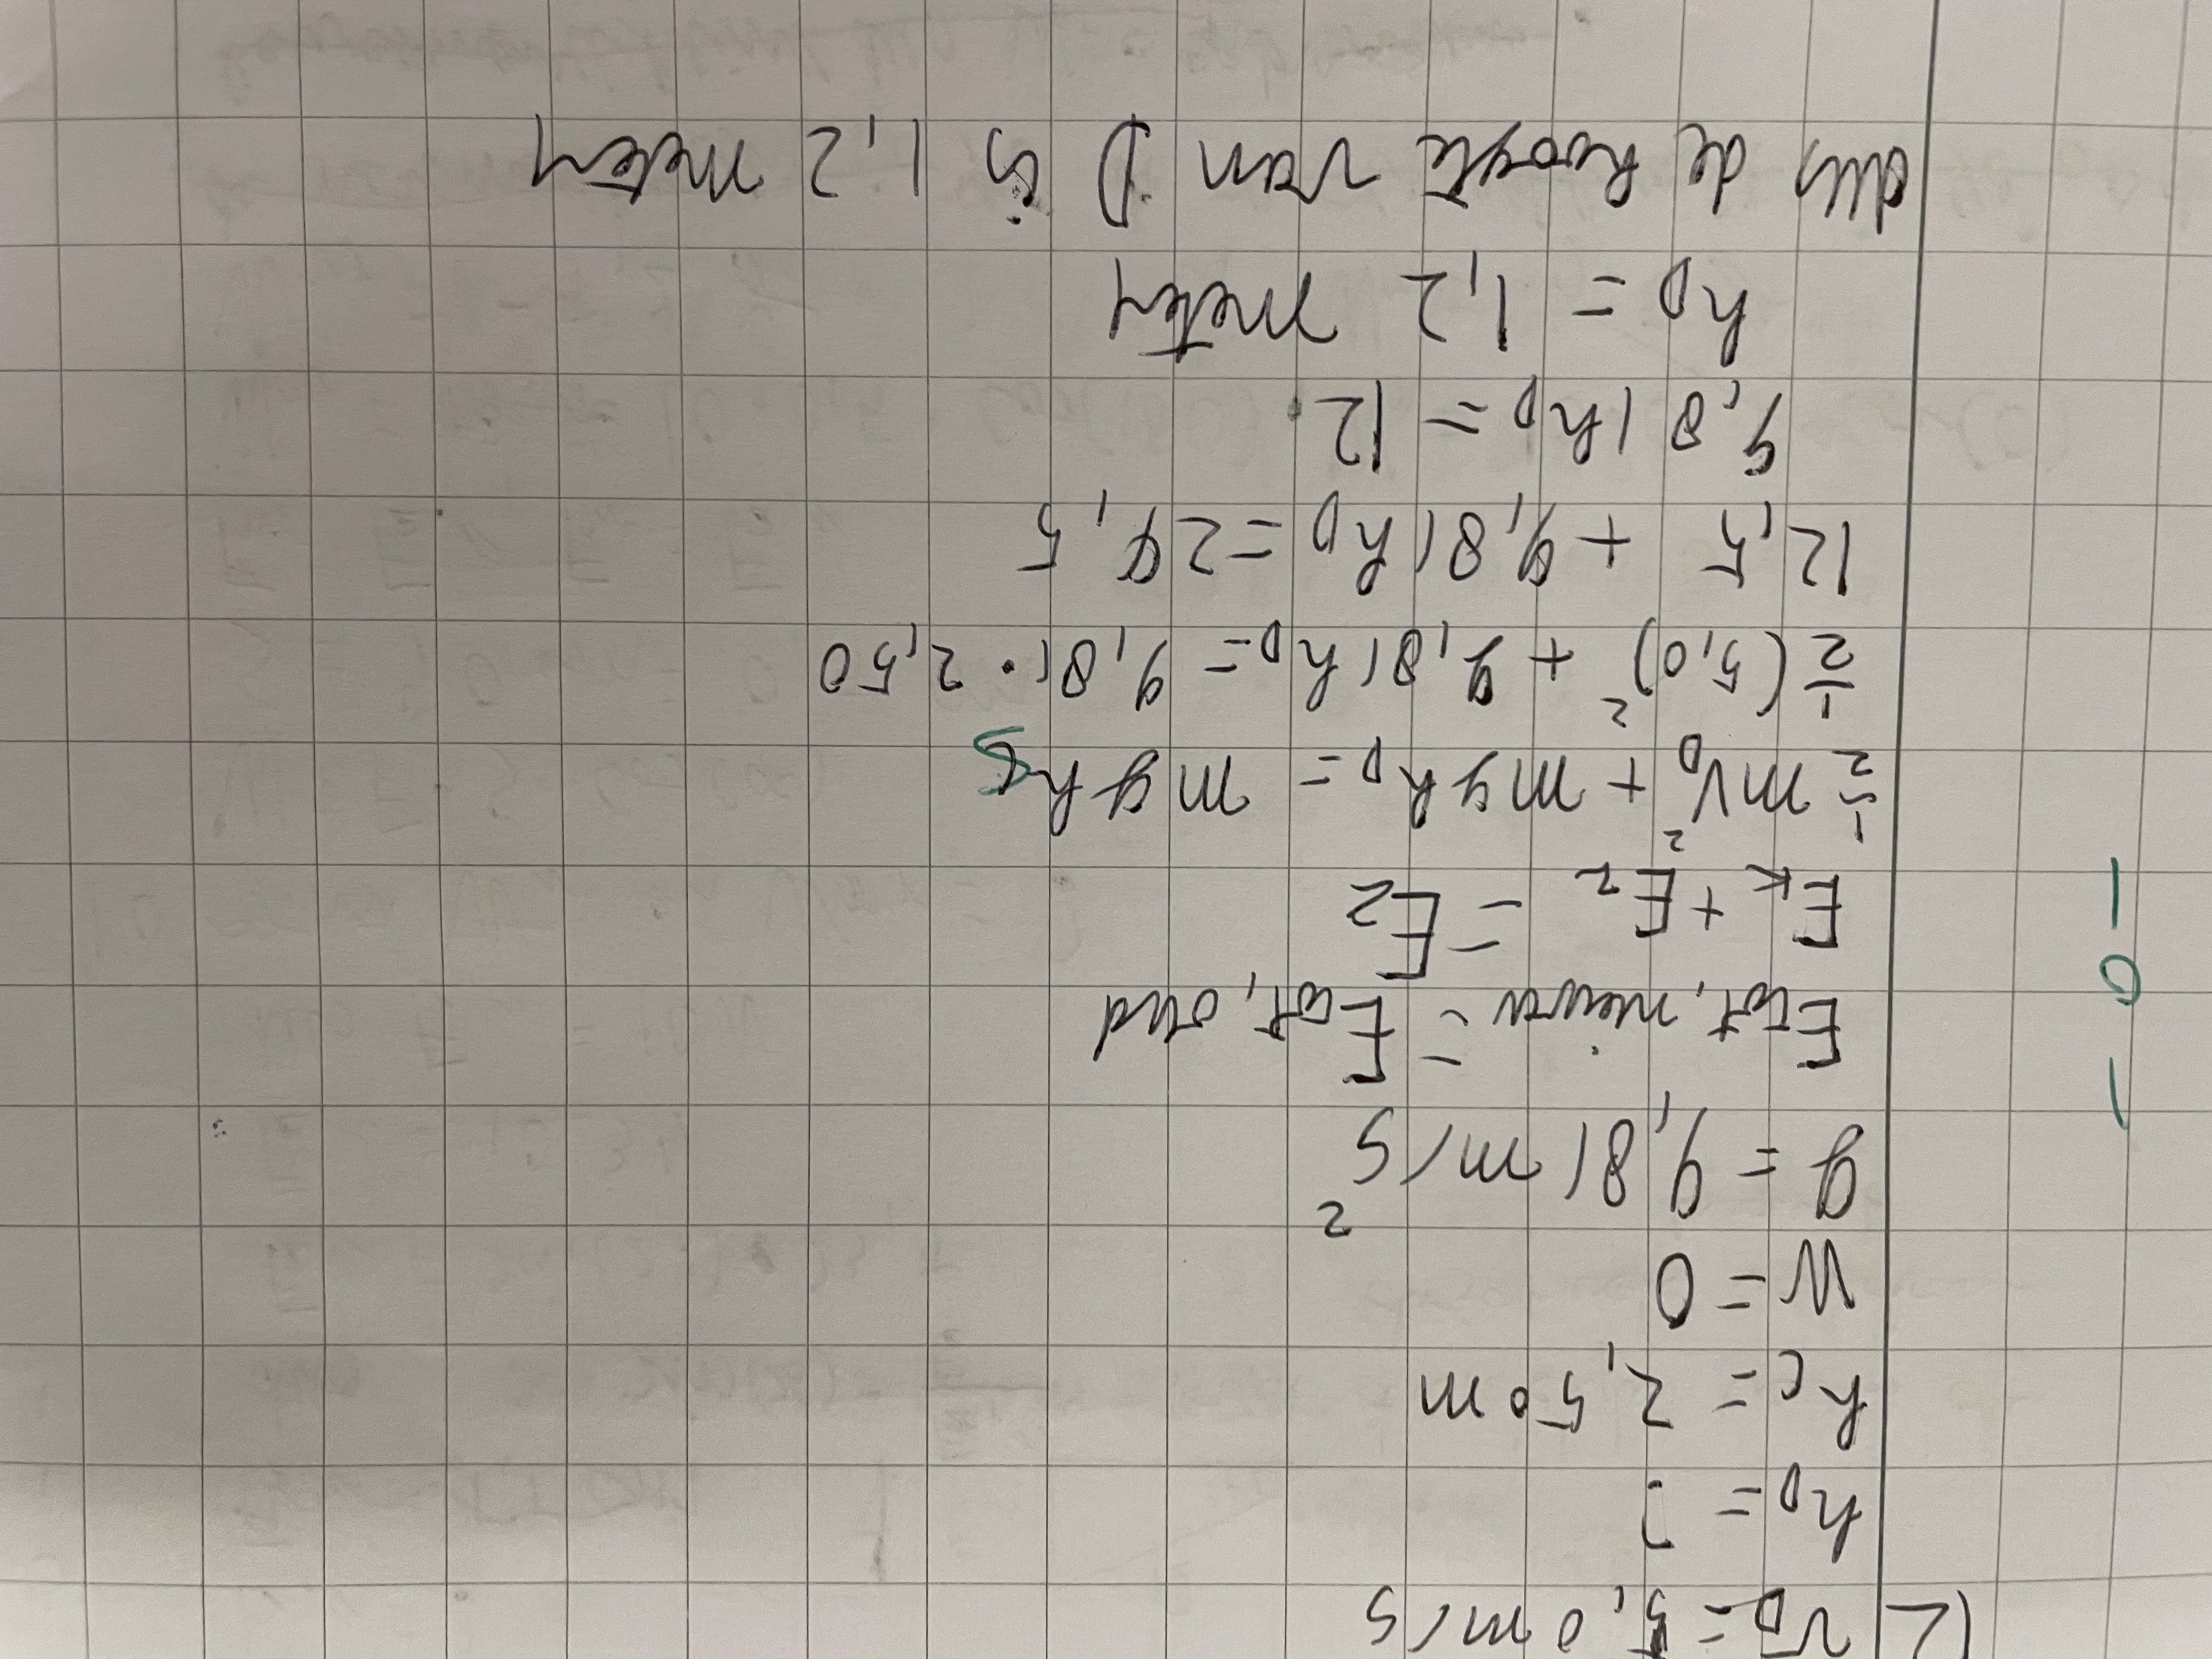 12 v_D = 5,0 m/s
h_D = ?
h_C = 2,50 m
W = 0
g = 9,81 m/s²
Etot, nieuw = Etot, oud
E_K + E_z = E_z
½mv_D² + mgh_D = mgh_S
½(5,0)² + 9,81h_D = 9,81 · 2,50
12,5 + 9,81h_D = 24,5
9,81h_D = 12
h_D = 1,2 meter
dus de hoogte van D is 1,2 meter
- 0 -